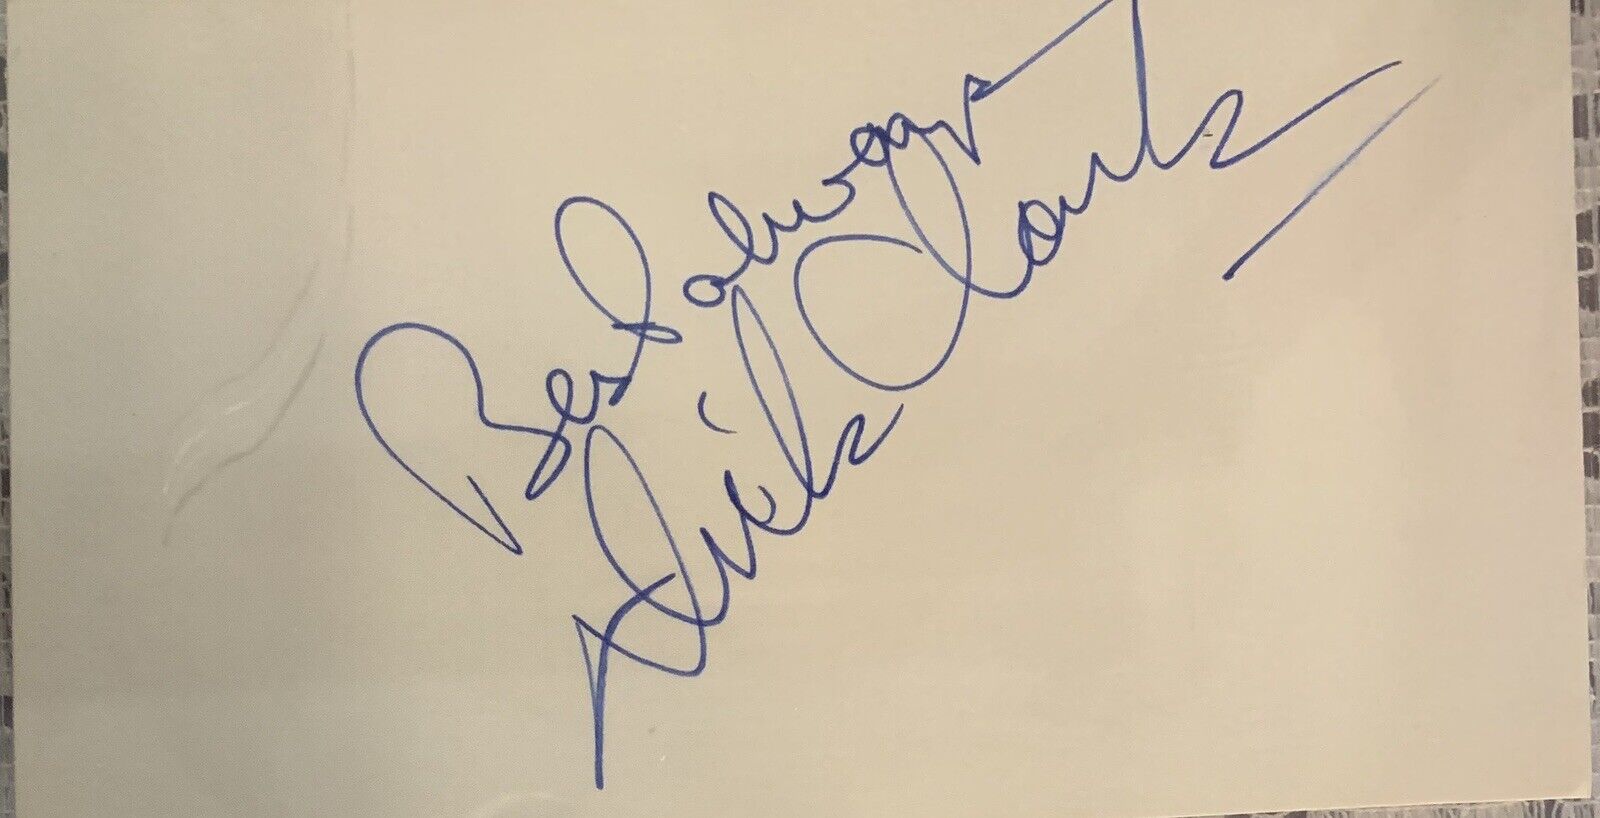 Best always
Dick Clark